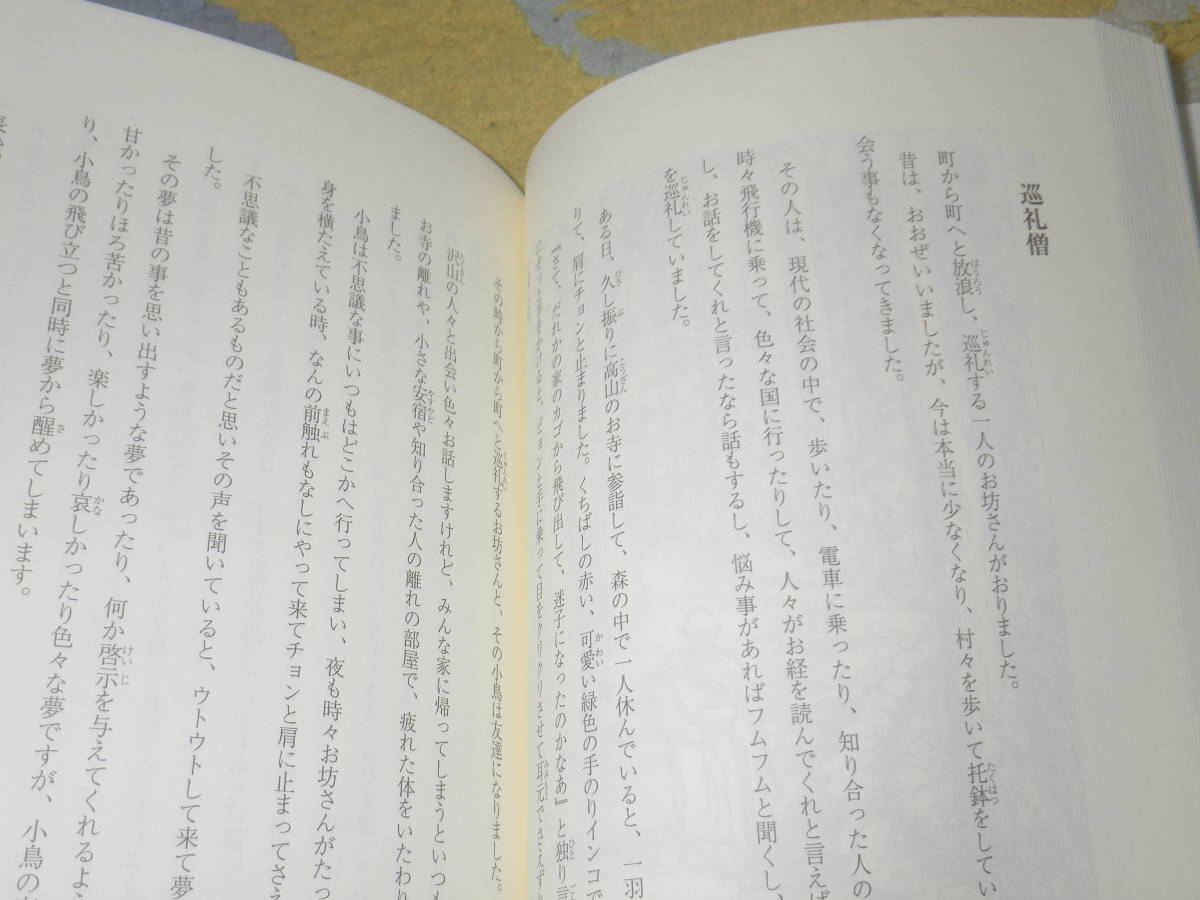 巡礼僧
町から町へと放浪し、巡礼する一人のお坊さんがおりました。
昔は、おおぜいいましたが、今は本当に少なくなり、村々を歩いて托鉢をしてい
会う事もなくなってきました。
その人は、現代の社会の中で、歩いたり、電車に乗ったり、知り合った人の
時々飛行機に乗って、色々な国に行ったりして、人々がお経を読んでくれと言えば
し、お話をしてくれと言ったなら話もするし、悩み事があればフムフムと聞くし、
を巡礼していました。
ある日、久し振りに高山のお寺に参詣して、森の中で一人休んでいると、一羽
りて、肩にチョンと止まりました。くちばしの赤い、可愛い緑色の手のりインコで
『さて、だれかの家のカゴから飛び出して、迷子になったのかなあ』と独り言
にそっと手をかけると、ピョンと手に乗って目をクリクリさせて耳元でさえずり
その時から町から町へと巡礼するお坊さんと、その小鳥は友達になりました。
沢山の人々と出会い色々お話しますけれど、みんな家に帰ってしまうといつも
お寺の離れや、小さな安宿や知り合った人の離れの部屋で、疲れた体をいたわり
ました。
小鳥は不思議な事にいつもはどこかへ行ってしまい、夜も時々お坊さんがたっ
身を横たえている時、なんの前触れもなしにやって来てチョンと肩に止まってさえ
不思議なこともあるものだと思いその声を聞いていると、ウトウトして来て夢
した。
その夢は昔の事を思い出すような夢であったり、何か啓示を与えてくれるよう
甘かったりほろ苦かったり、楽しかったり哀しかったり色々な夢ですが、小鳥の
り、小鳥の飛び立つと同時に夢から醒めてしまいます。